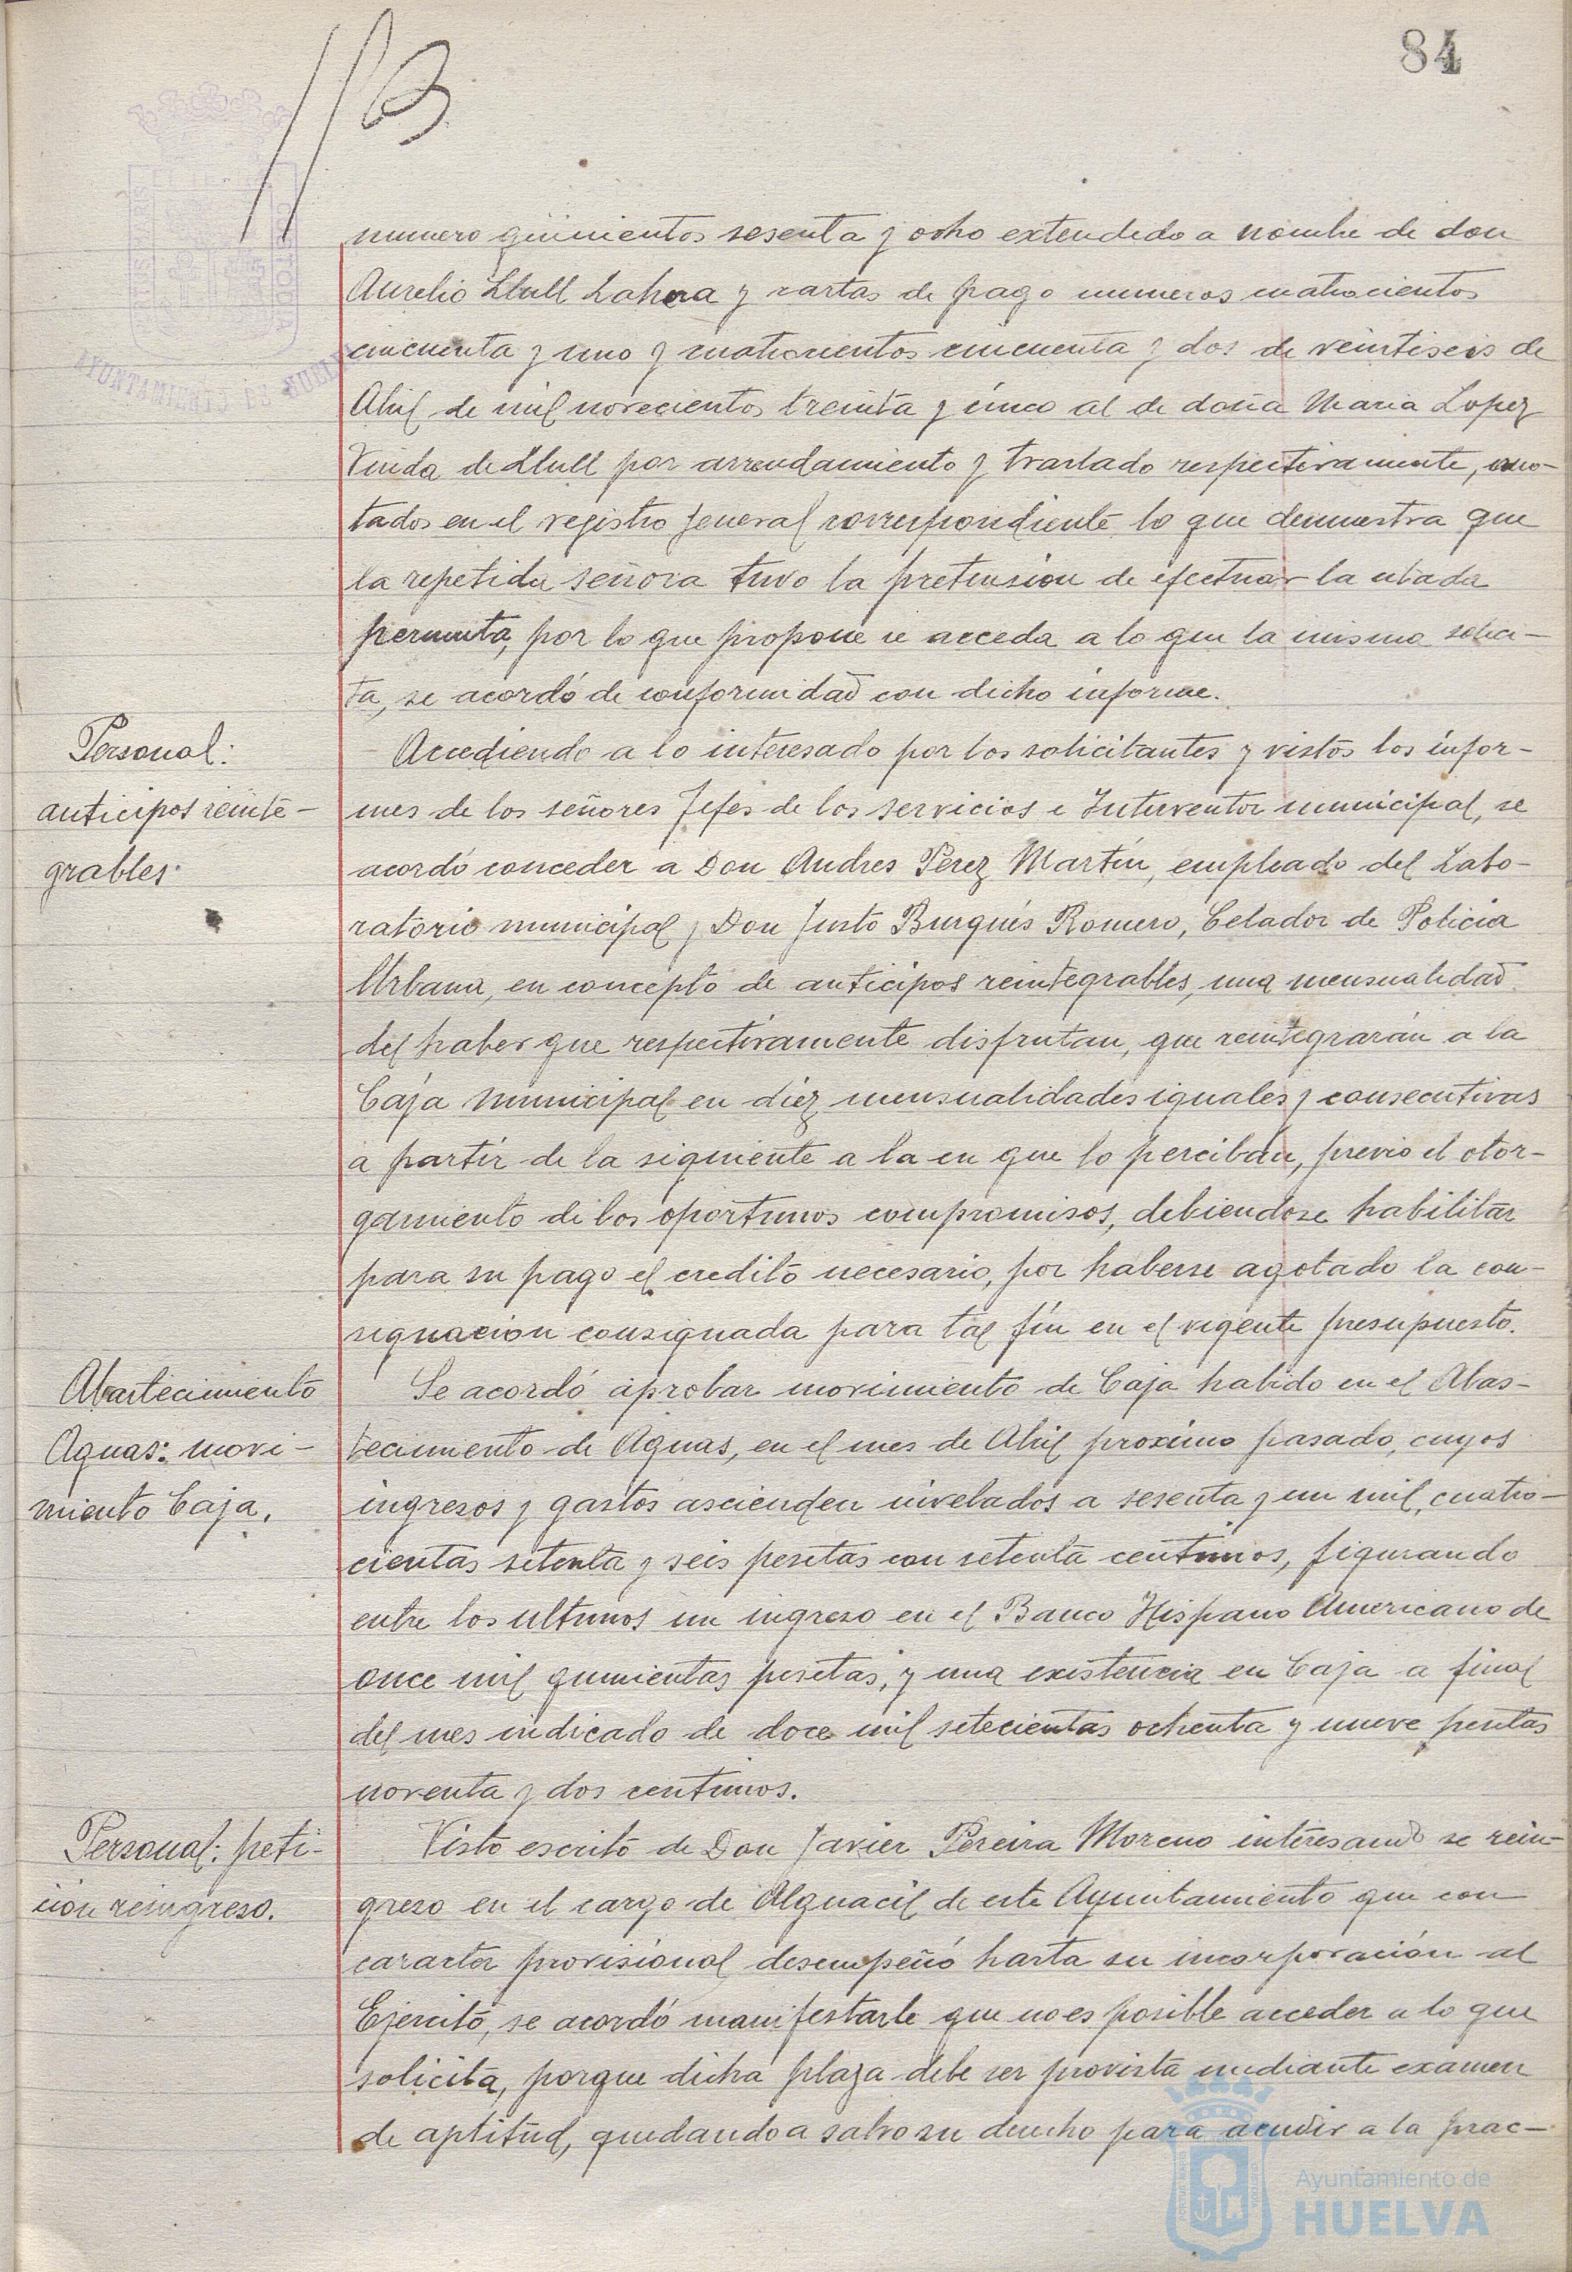 84
numero quinientos sesenta y ocho extendido a nombre de don
Aurelio Llull Lahera y cartas de pago numeros cuatrocientos
cincuenta y uno y cuatrocientos cincuenta y dos de veintiseis de
Abril de mil novecientos treinta y cinco al de doña Maria Lopez
Viuda de Llull por arrendamiento y traslado respectivamente, ano-
tados en el registro general correspondiente lo que demuestra que
la repetida señora tuvo la pretension de efectuar la citada
permuta, por lo que propone se acceda a lo que la misma solici-
ta, se acordó de conformidad con dicho informe.
Personal:
anticipos reinte-
grables.
Accediendo a lo interesado por los solicitantes y vistos los infor-
mes de los señores Jefes de los servicios e Interventor municipal, se
acordó conceder a Don Andres Perez Martín, empleado del Labo-
ratorio municipal y Don Justo Burgués Romero, Celador de Policia
Urbana, en concepto de anticipos reintegrables, una mensualidad
del haber que respectivamente disfrutan, que reintegrarán a la
Caja Municipal en diez mensualidades iguales y consecutivas
a partir de la siguiente a la en que lo perciban, previo el otor-
gamiento de los oportunos compromisos, debiendose habilitar
para su pago el credito necesario, por haberse agotado la con-
signacion consignada para tal fín en el vigente presupuesto.
Abastecimiento
Aguas: movi-
miento Caja.
Se acordó aprobar movimiento de Caja habido en el Abas-
tecimiento de Aguas, en el mes de Abril proximo pasado, cuyos
ingresos y gastos ascienden nivelados a sesenta y un mil, cuatro-
cientas setenta y seis pesetas con setenta centimos, figurando
entre los ultimos un ingreso en el Banco Hispano Americano de
once mil quinientas pesetas, y una existencia en Caja a final
del mes indicado de doce mil setecientas ochenta y nueve pesetas
noventa y dos centimos.
Personal: peti-
cion reingreso.
Visto escrito de Don Javier Pereira Moreno interesando se rein-
greso en el cargo de Alguacil de este Ayuntamiento que con
caracter provisional desempeñó hasta su incorporación al
Ejercito, se acordó manifestarle que no es posible acceder a lo que
solicita, porque dicha plaza debe ser provista mediante examen
de aptitud, quedando a salvo su derecho para acudir a la prac-
AYUNTAMIENTO DE HUELVA
Ayuntamiento de
HUELVA